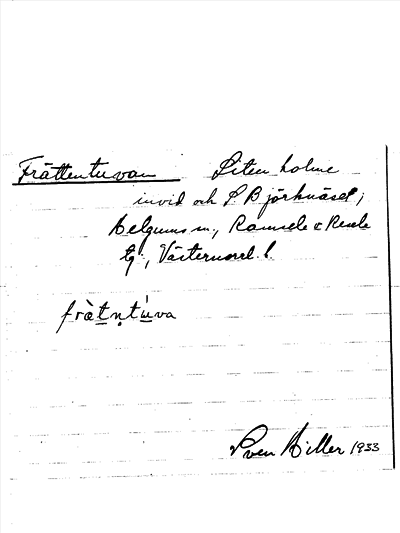 Frättentuvan Liten holme
invid och S. Björknäset,
Helgums sn, Ramsele o Resele
tg, Västernorrl. l.
fràtntúva
Sven Hiller 1933